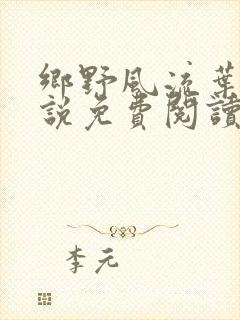 鄉野風流葉
說免費閱讀
李元